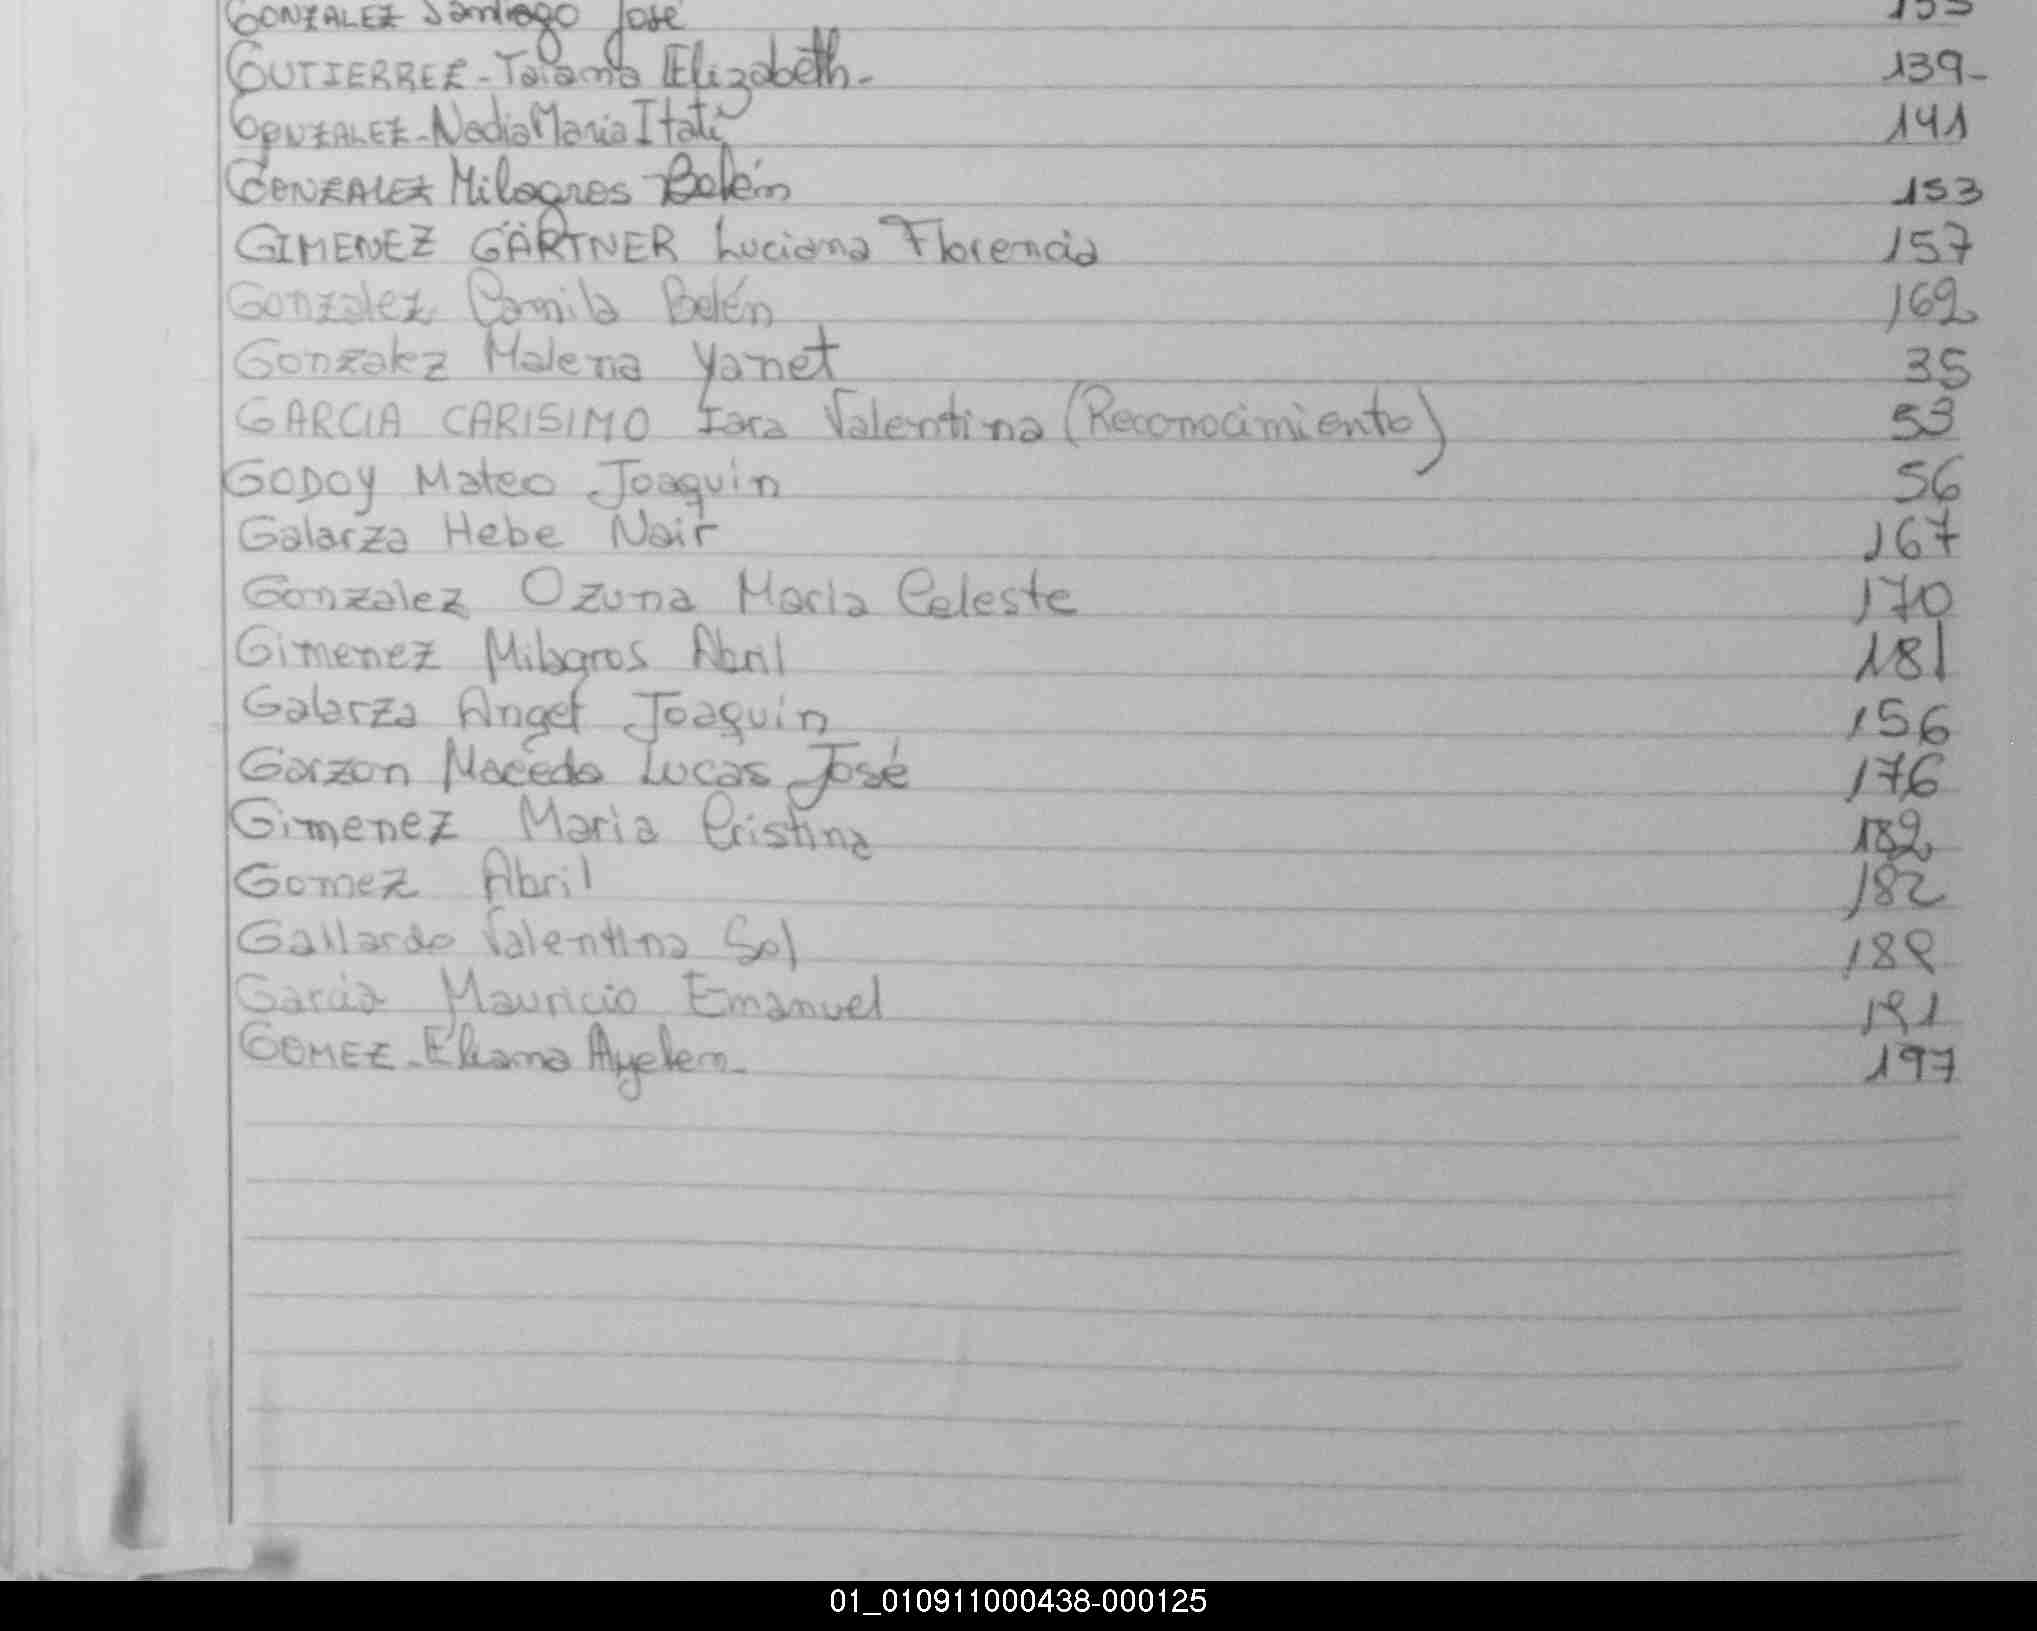 GONZALEZ Santiago José
GUTIERREZ - Taiama Elizabeth - 139-
GONZALEZ - Nadia Maria Itatí 141
GONZALEZ Milagros Belén 153
GIMENEZ GÄRTNER Luciana Florencia 157
Gonzalez Camila Belén 162
Gonzalez Malena Yanet 35
GARCIA CARISIMO Iara Valentina (Reconocimiento) 53
GODOY Mateo Joaquin 56
Galarza Hebe Nair 167
Gonzalez Ozuna Maria Celeste 170
Gimenez Milagros Abril 181
Galarza Angel Joaquin 156
Garzon Macedo Lucas José 176
Gimenez Maria Cristina 182
Gomez Abril 182
Gallardo Valentina Sol
Garcia Mauricio Emanuel 191
GOMEZ - Eliana Ayelen - 197
01_010911000438-000125